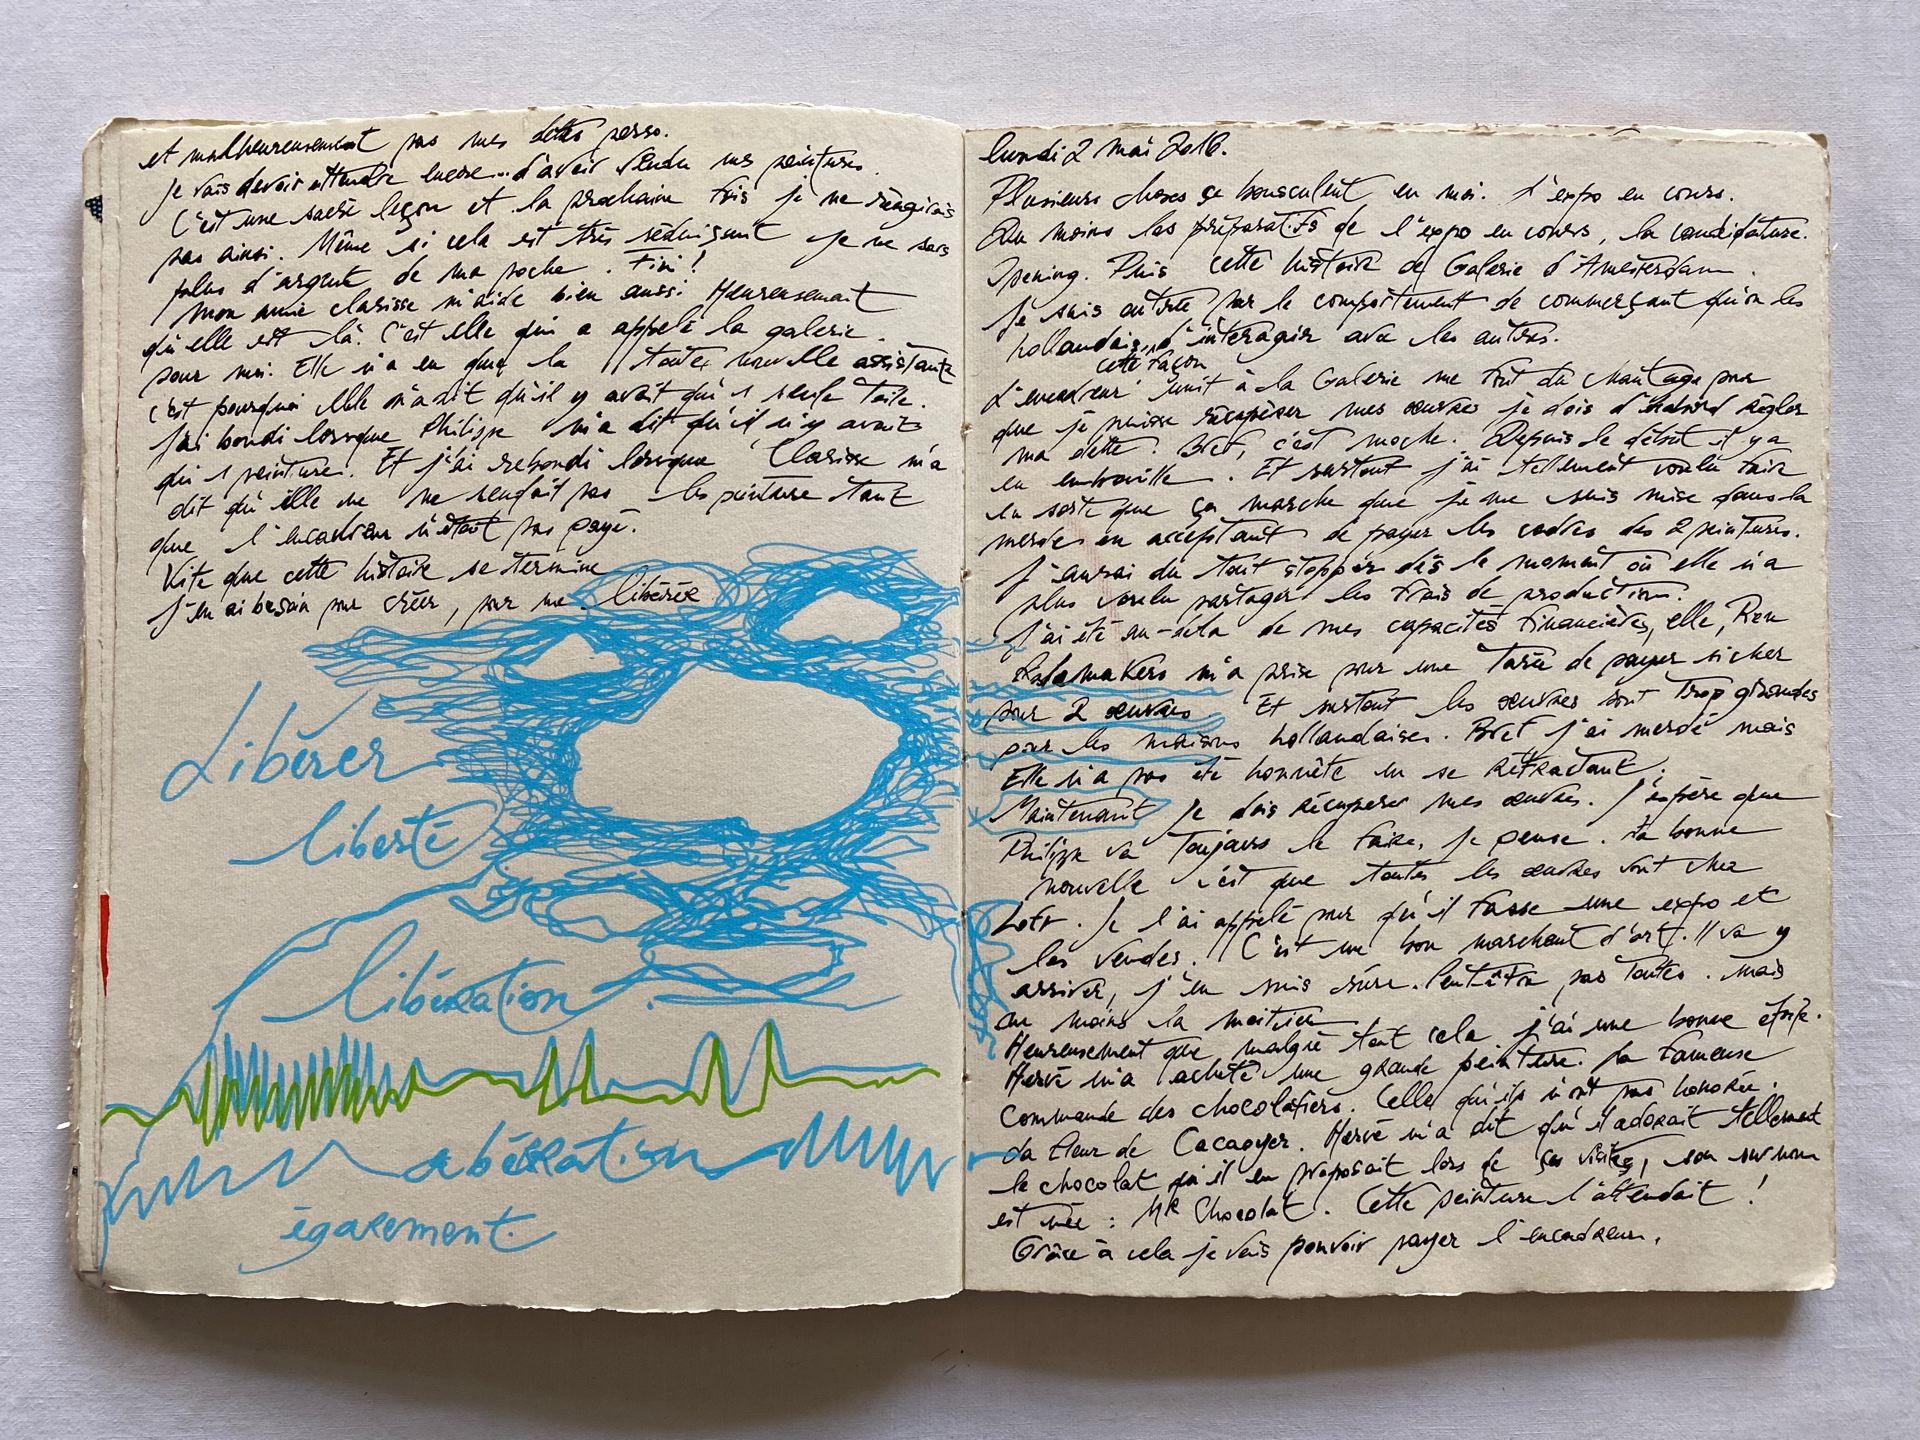 et malheureusement pas mes dettes perso.
Je vais devoir attendre encore... d'avoir vendu mes peintures.
C'est une sacré leçon et la prochaine fois je ne réagirais
pas ainsi. Même si cela est très séduisant je ne sors
plus d'argent de ma poche. Fini!
Mon amie Clarisse m'aide bien aussi Heureusement
qu'elle est là. C'est elle qui a appelé la galerie
pour moi. Elle n'a eu que la toute nouvelle assistante
c'est pourquoi elle m'a dit qu'il y avait qu'1 seule toile.
J'ai bondi lorsque Philippe m'a dit qu'il n'y avait
qu'1 peinture. Et j'ai rebondi lorsque Clarisse m'a
dit qu'elle ne me rendait pas les peinture tant
que l'encadreur n'était pas payé.
Vite que cette histoire se termine
J'en ai besoin pour créer, pour me libérer
Libérer
liberté
libération.
abération
également.
lundi 2 mai 2016.
Plusieurs choses se bousculent en moi. L'expo en cours.
Du moins les préparatifs de l'expo en cours, la candidature.
Opening. Puis cette histoire de Galerie d'Amesterdam.
Je suis outrée par le comportement de commerçant qu'on les
hollandais, d'intéragir avec les autres.
cette façon
L'encadreur unit à la Galerie me font du chantage pour
que je puisse récupérer mes œuvres je dois d'abord régler
ma dette. Bref, c'est moche. Depuis le début il y a
eu embrouille. Et surtout j'ai tellement voulu faire
en sorte que ça marche que je me suis mise dans la
merde en acceptant de payer les cadres des 2 peintures.
J'aurai du tout stopper dès le moment où elle n'a
plus voulu partager les frais de production.
J'ai été au-delà de mes capacités financières, elle,
m'a prise pour une tarée de payer si cher
pour 2 œuvres Et surtout les œuvres sont trop grandes
pour les maisons hollandaises. Bref j'ai merdé mais
Elle n'a pas été honnête en se rétractant.
Maintenant Je dois récupérer mes œuvres. J'espère que
Philippe va toujours le faire, je pense. La bonne
nouvelle c'est que toutes les œuvres vont chez
Je l'ai appelé pour qu'il fasse une expo et
les vendes. C'est un bon marchant d'art. Il va y
arriver, j'en suis sûre. Peut-être pas toutes. Mais
au moins la moitier.
Heureusement que malgré tout cela j'ai une bonne étoile.
Hervé m'a acheté une grande peinture. La fameuse
commande des chocolatiers. Celle qu'ils n'ont pas honorée.
La fleur de Cacaoyer. Hervé m'a dit qu'il adorait tellement
le chocolat qu'il en proposait lors de ses visites, son surnom
est née : Mr Chocolat. Cette peinture l'attendait !
Grâce à cela je vais pouvoir payer l'encadreur.